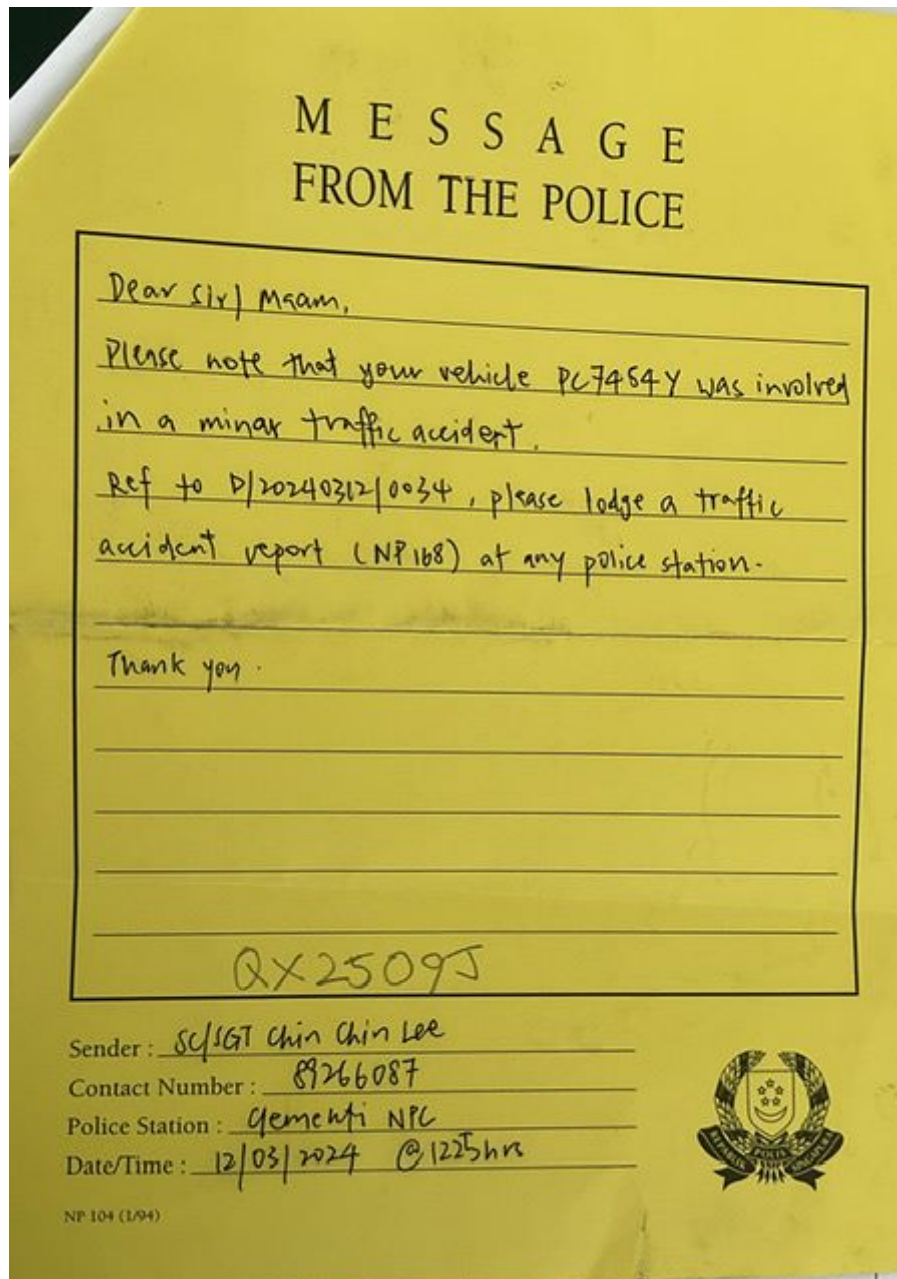 MESSAGE
FROM THE POLICE
Dear Sir/ Maam,
Please note that your vehicle PC7454Y was involved
in a minar traffic accident.
Ref to D/20240312/0034, please lodge a traffic
accident report (NP168) at any police station.
Thank you.
QX2509J
Sender : SC/SGT Chin Chin Lee
Contact Number : 89266087
Police Station : Clementi NPC
Date/Time : 12/03/2024 @1225hrs
REPUBLIK POLIS SINGAPURA
NP 104 (1/94)